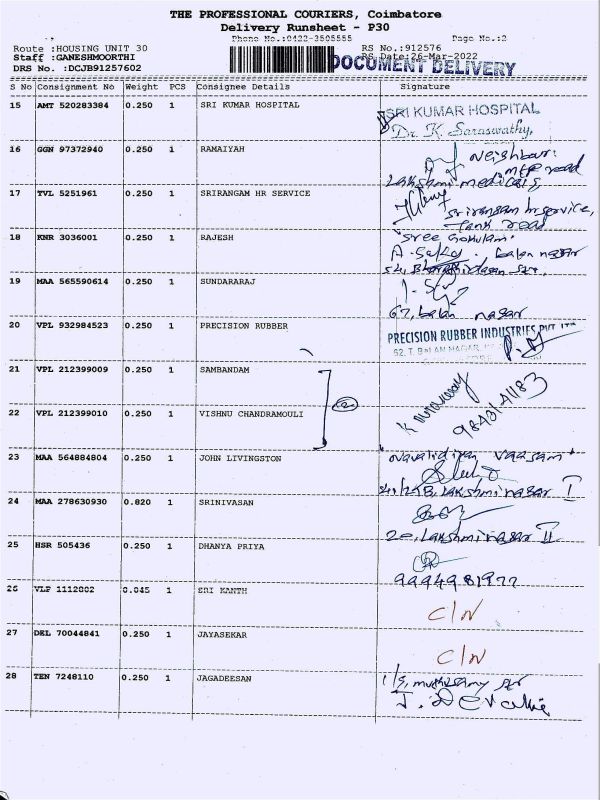 THE PROFESSIONAL COURIERS, Coimbatore
Delivery Runsheet - P30
Phone No.:0422-3505555 Page No.:2
Route :HOUSING UNIT 30 RS No.:912576
Staff :GANESHMOORTHI RS Date:26-Mar-2022
DRS No. :DCJB91257602 DOCUMENT DELIVERY
S No Consignment No Weight PCS Consignee Details Signature
15 AMT 520283384 0.250 1 SRI KUMAR HOSPITAL SRI KUMAR HOSPITAL
Dr. K. Saraswathy,
16 GGN 97372940 0.250 1 RAMAIYAH Neighbour:
MTP road
Lakshmi medicals,
17 TVL 5251961 0.250 1 SRIRANGAM HR SERVICE
srirangam hr service,
Tank road
18 KNR 3036001 0.250 1 RAJESH Sree Gokulam.
balan nagar
19 MAA 565590614 0.250 1 SUNDARARAJ
67, balan nagar
20 VPL 932984523 0.250 1 PRECISION RUBBER PRECISION RUBBER INDUSTRIES PVT LTD
21 VPL 212399009 0.250 1 SAMBANDAM
22 VPL 212399010 0.250 1 VISHNU CHANDRAMOULI 2
23 MAA 564884804 0.250 1 JOHN LIVINGSTON
Lakshmi nagar I
24 MAA 278630930 0.820 1 SRINIVASAN
20, Lakshmi nagar II
25 HSR 505436 0.250 1 DHANYA PRIYA
9994981977
26 VLP 1112802 0.045 1 SRI KANTH C/N
27 DEL 70044841 0.250 1 JAYASEKAR C/N
28 TEN 7248110 0.250 1 JAGADEESAN 1/5, muthusamy